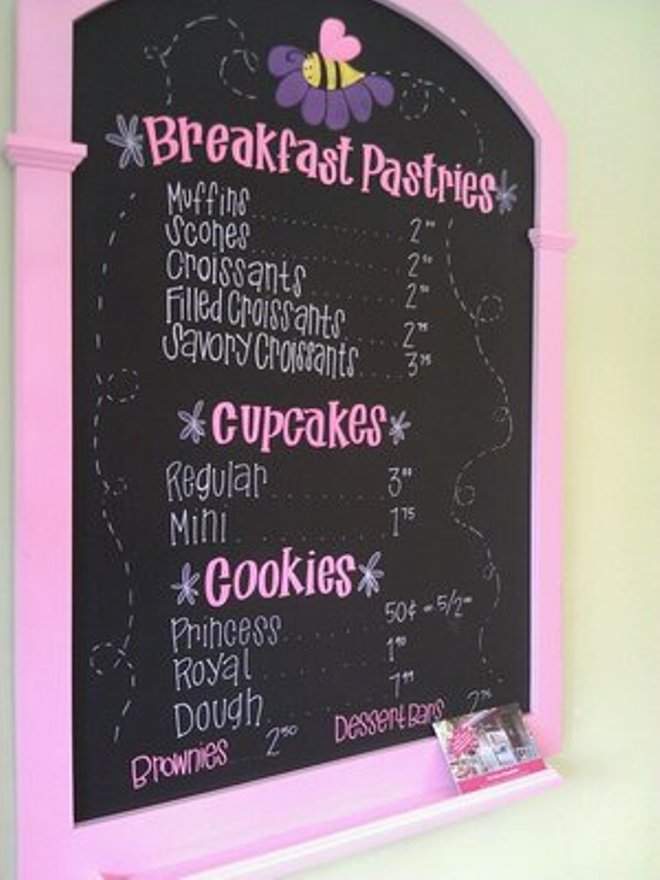 Breakfast Pastries
Muffins
Scones
Croissants
Filled Croissants 2 75
Savory Croissants 3 75
Cupcakes
Regular
Mini 1 75
Cookies
Princess 50¢ 5/2
Royal
Dough
Brownies 2 50 Dessert Bars 2 75